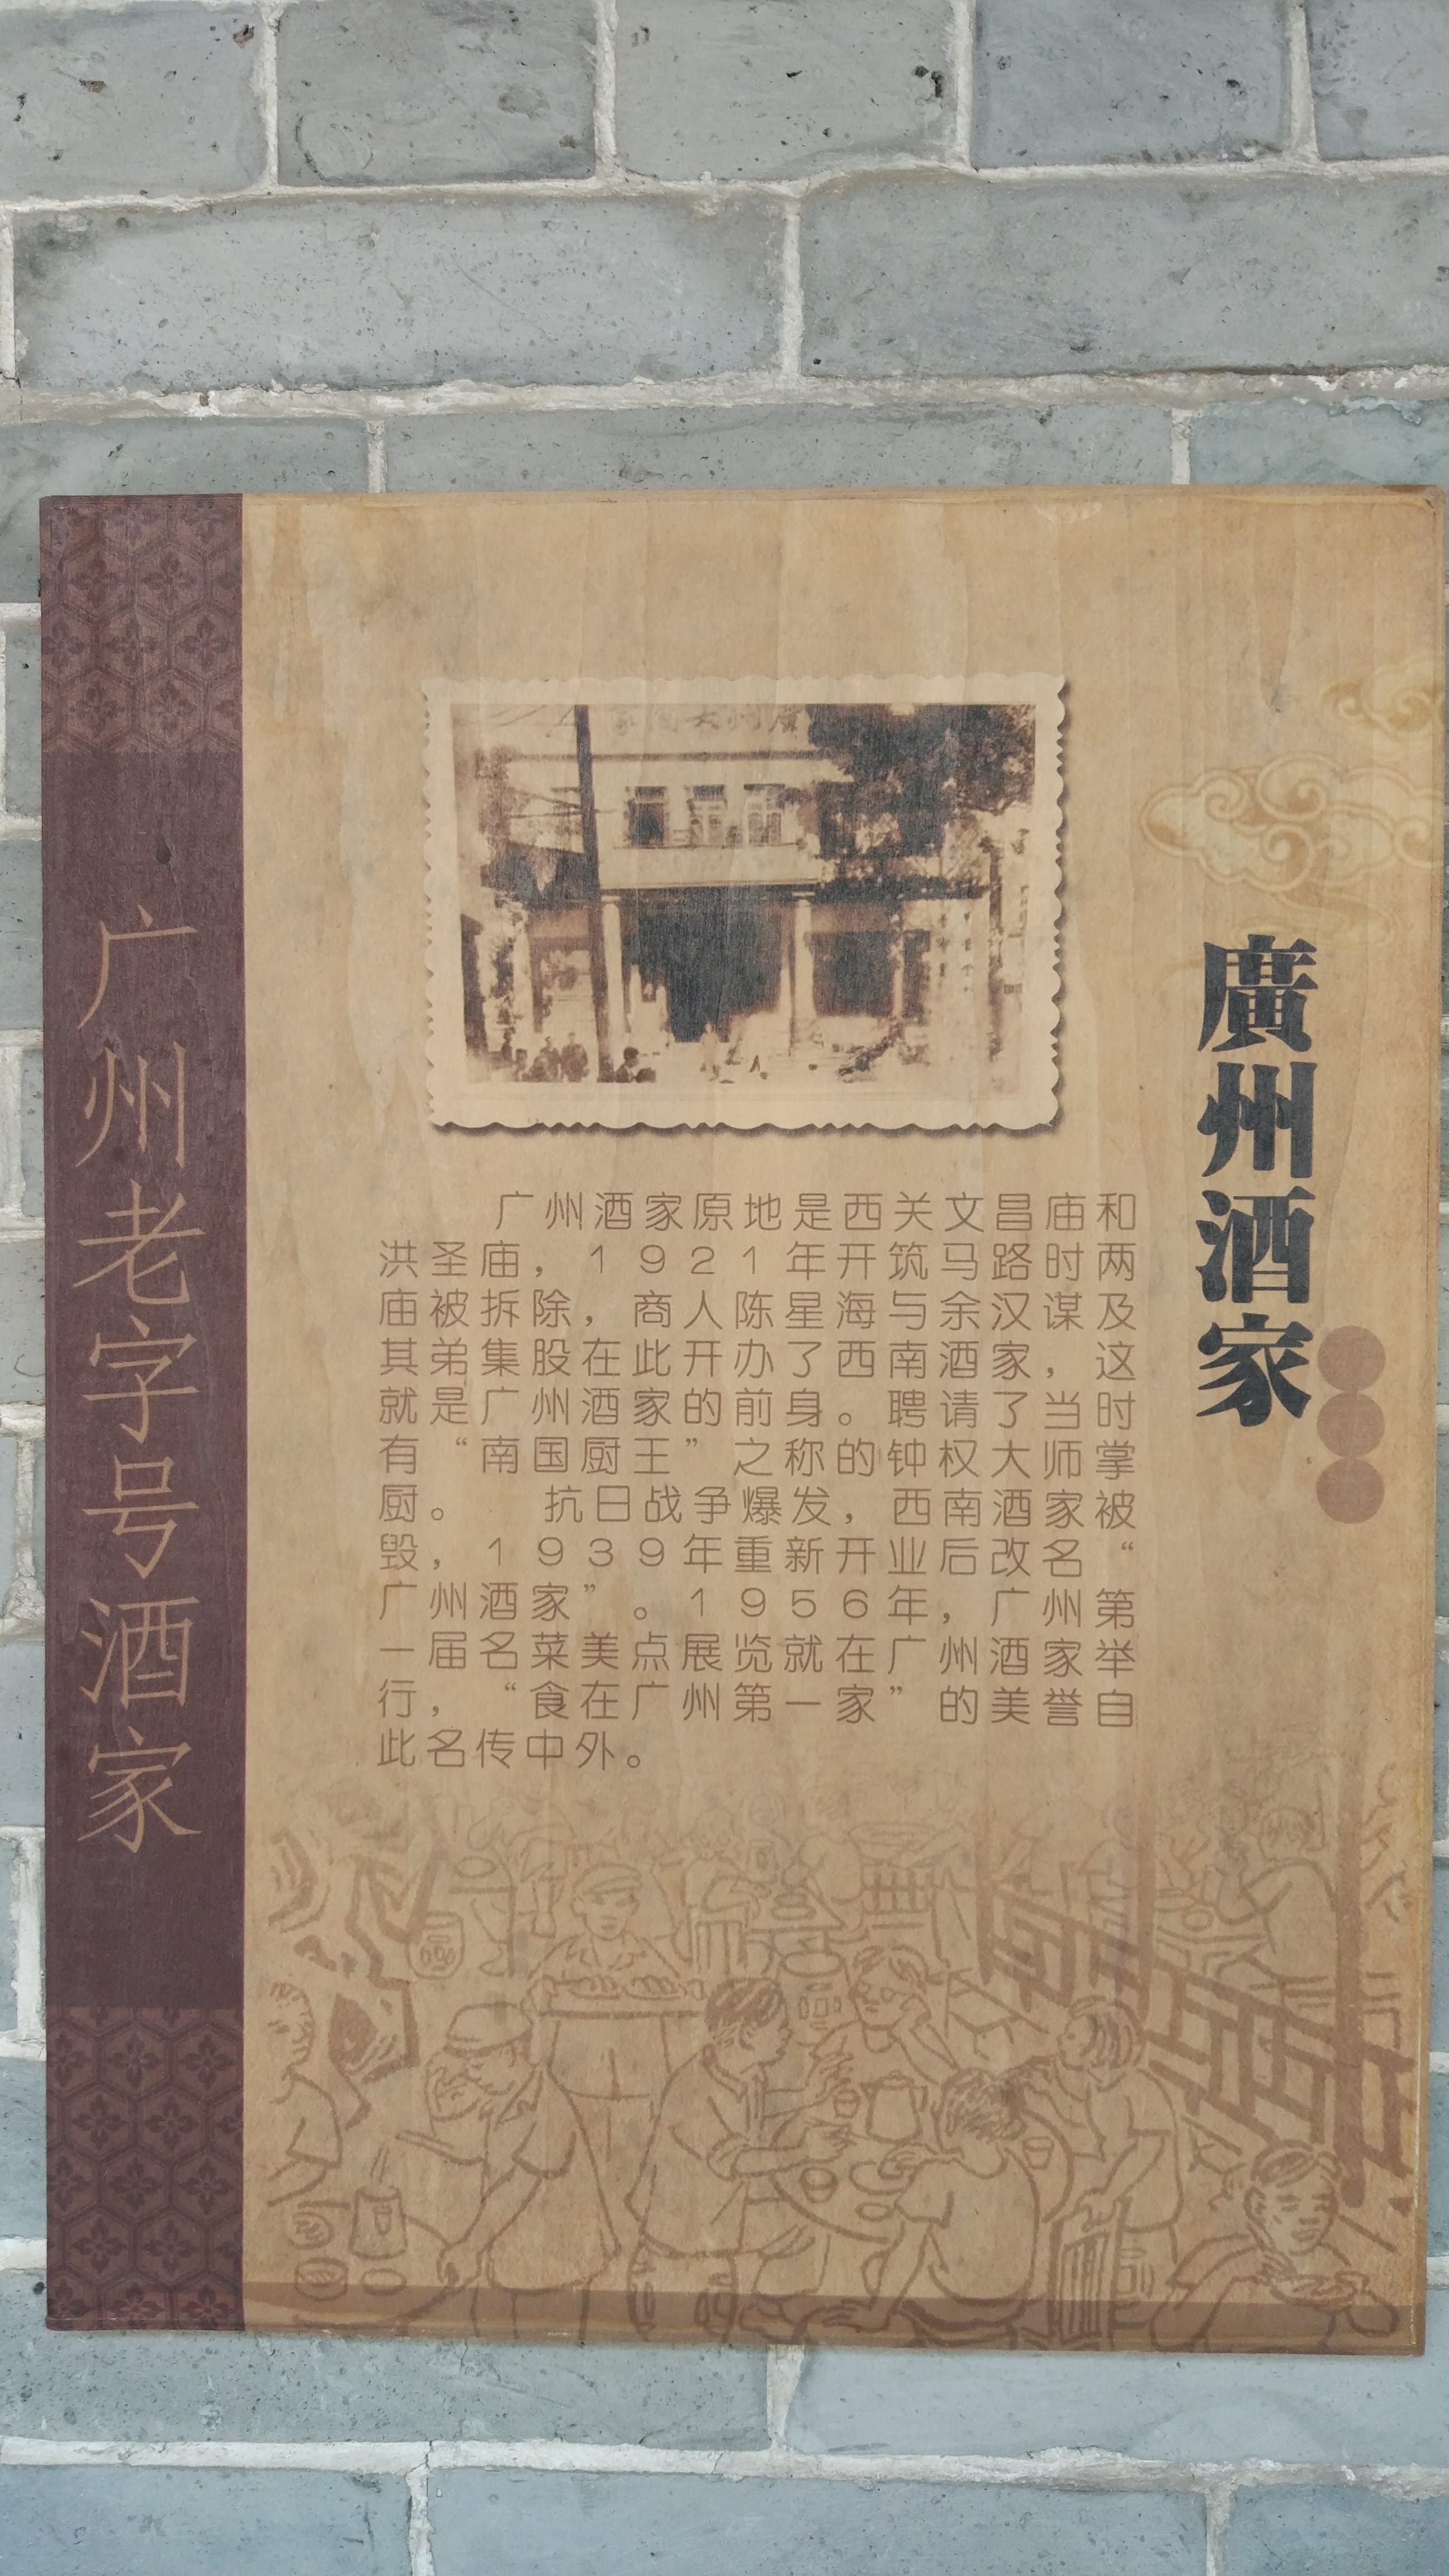 广州老字号酒家
廣州酒家
广州酒家原地是西关文昌庙和
洪圣庙，1921年开筑马路时两
庙被拆除，商人陈星海与余汉谋及
其弟集股在此开办了西南酒家，这
就是广州酒家的前身。聘请了当时
有“南国厨王”之称的钟权大师掌
厨。 抗日战争爆发，西南酒家被
毁，1939年重新开业后改名“
广州酒家”。1956年，广州第
一届名菜美点展览就在广州酒家举
行，“食在广州第一家”的美誉自
此名传中外。